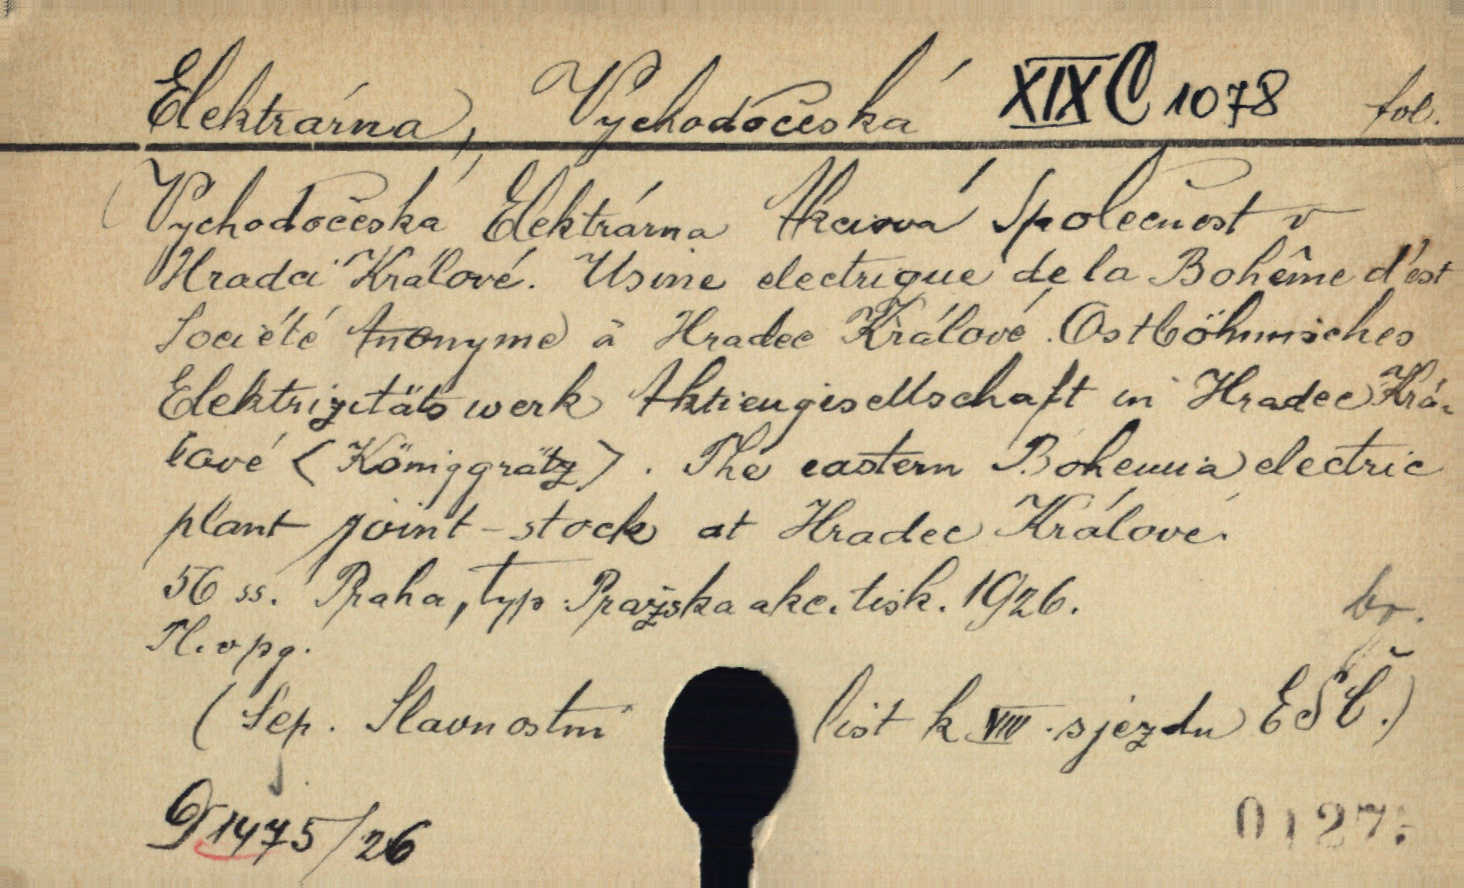 Elektrárna, Východočeská XIX C 1078 fol.
Východočeská Elektrárna Akciová Společnost v
Hradci Králové. Usine electrique de la Bohême d'est
Société Anonyme à Hradec Králové. Ostböhmisches
Elektrizitätswerk Aktiengesellschaft in Hradec Krá-
lové (Königgrätz). The eastern Bohemia electric
plant joint-stock at Hradec Králové.
56 ss. Praha, typ. Pražska akc. tisk. 1926.
br.
Tl. v pg.
(Sep. Slavnostní list k VIII. sjezdu ESČ.)
D 1475/26
0127